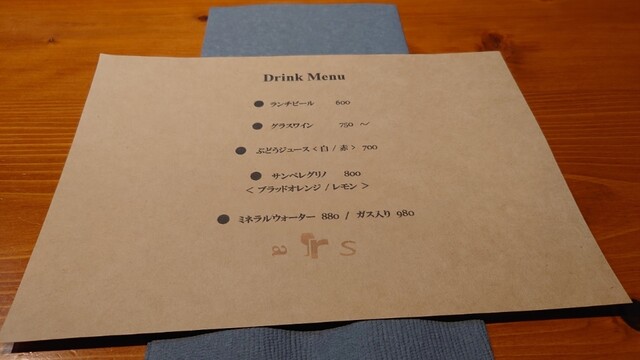 Drink Menu
● ランチビール 600
● グラスワイン 750 ～
● ぶどうジュース < 白 / 赤 > 700
● サンペレグリノ 800
< ブラッドオレンジ / レモン >
● ミネラルウォーター 880 / ガス入り 980